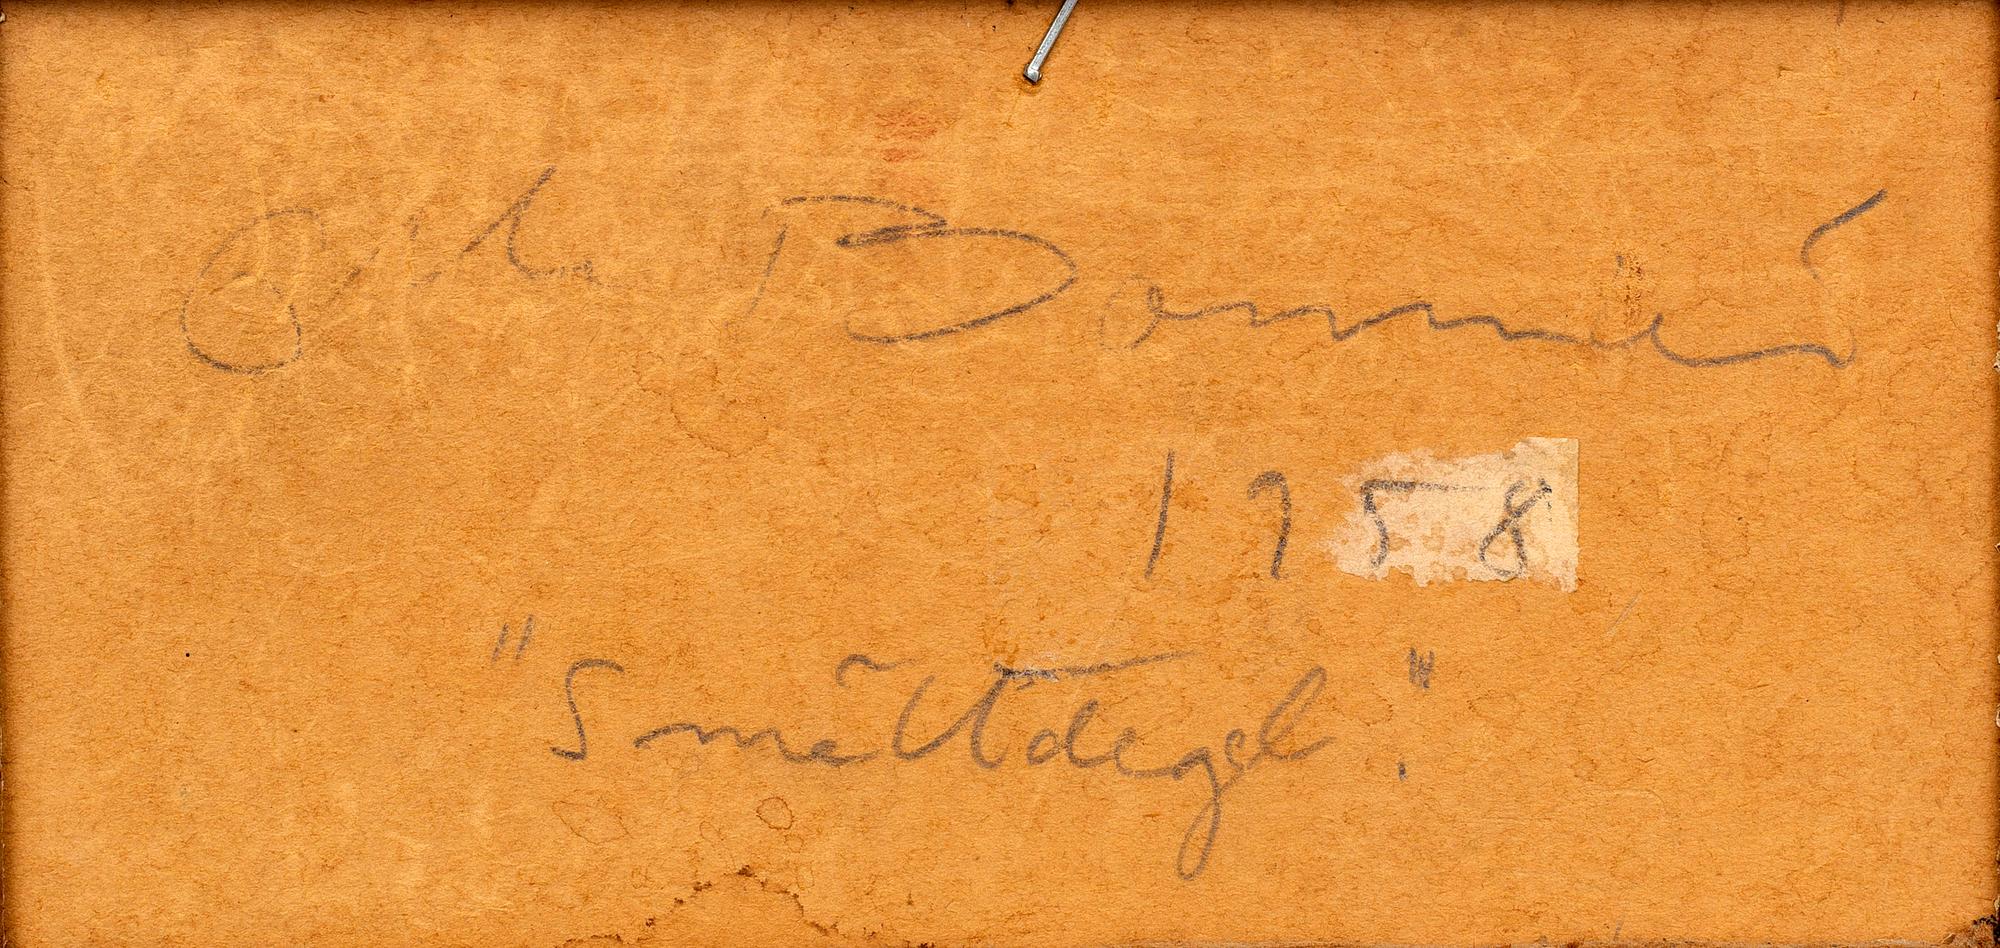 Olle Bonniér
1958
"Smältdegel."